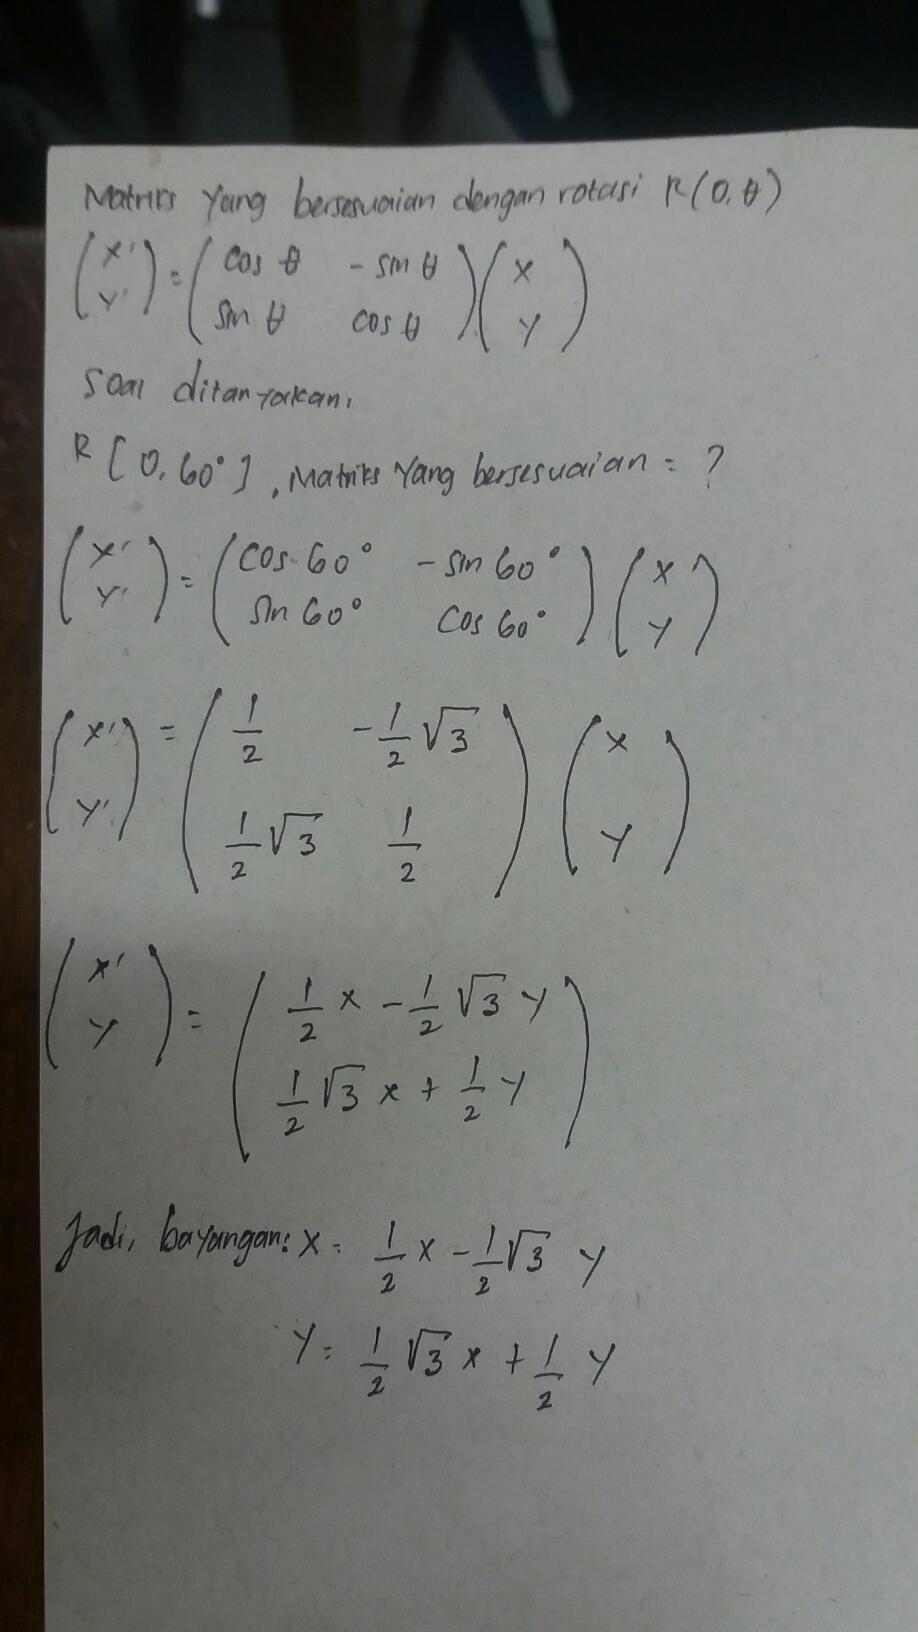 Matriks Yang bersesuaian dengan rotasi R(0.θ)
(x' y') = (cos θ -sin θ sin θ cos θ)(x y)
Soal ditanyakan.
R [0.60°], Matriks Yang bersesuaian = ?
(x' y') = (cos 60° -sin 60° sin 60° cos 60°)(x y)
(x' y') = (1/2 -1/2√3 1/2√3 1/2)(x y)
(x' y) = (1/2 x - 1/2√3 y 1/2√3 x + 1/2 y)
Jadi, bayangan: x = 1/2 x - 1/2√3 y
y = 1/2√3 x + 1/2 y